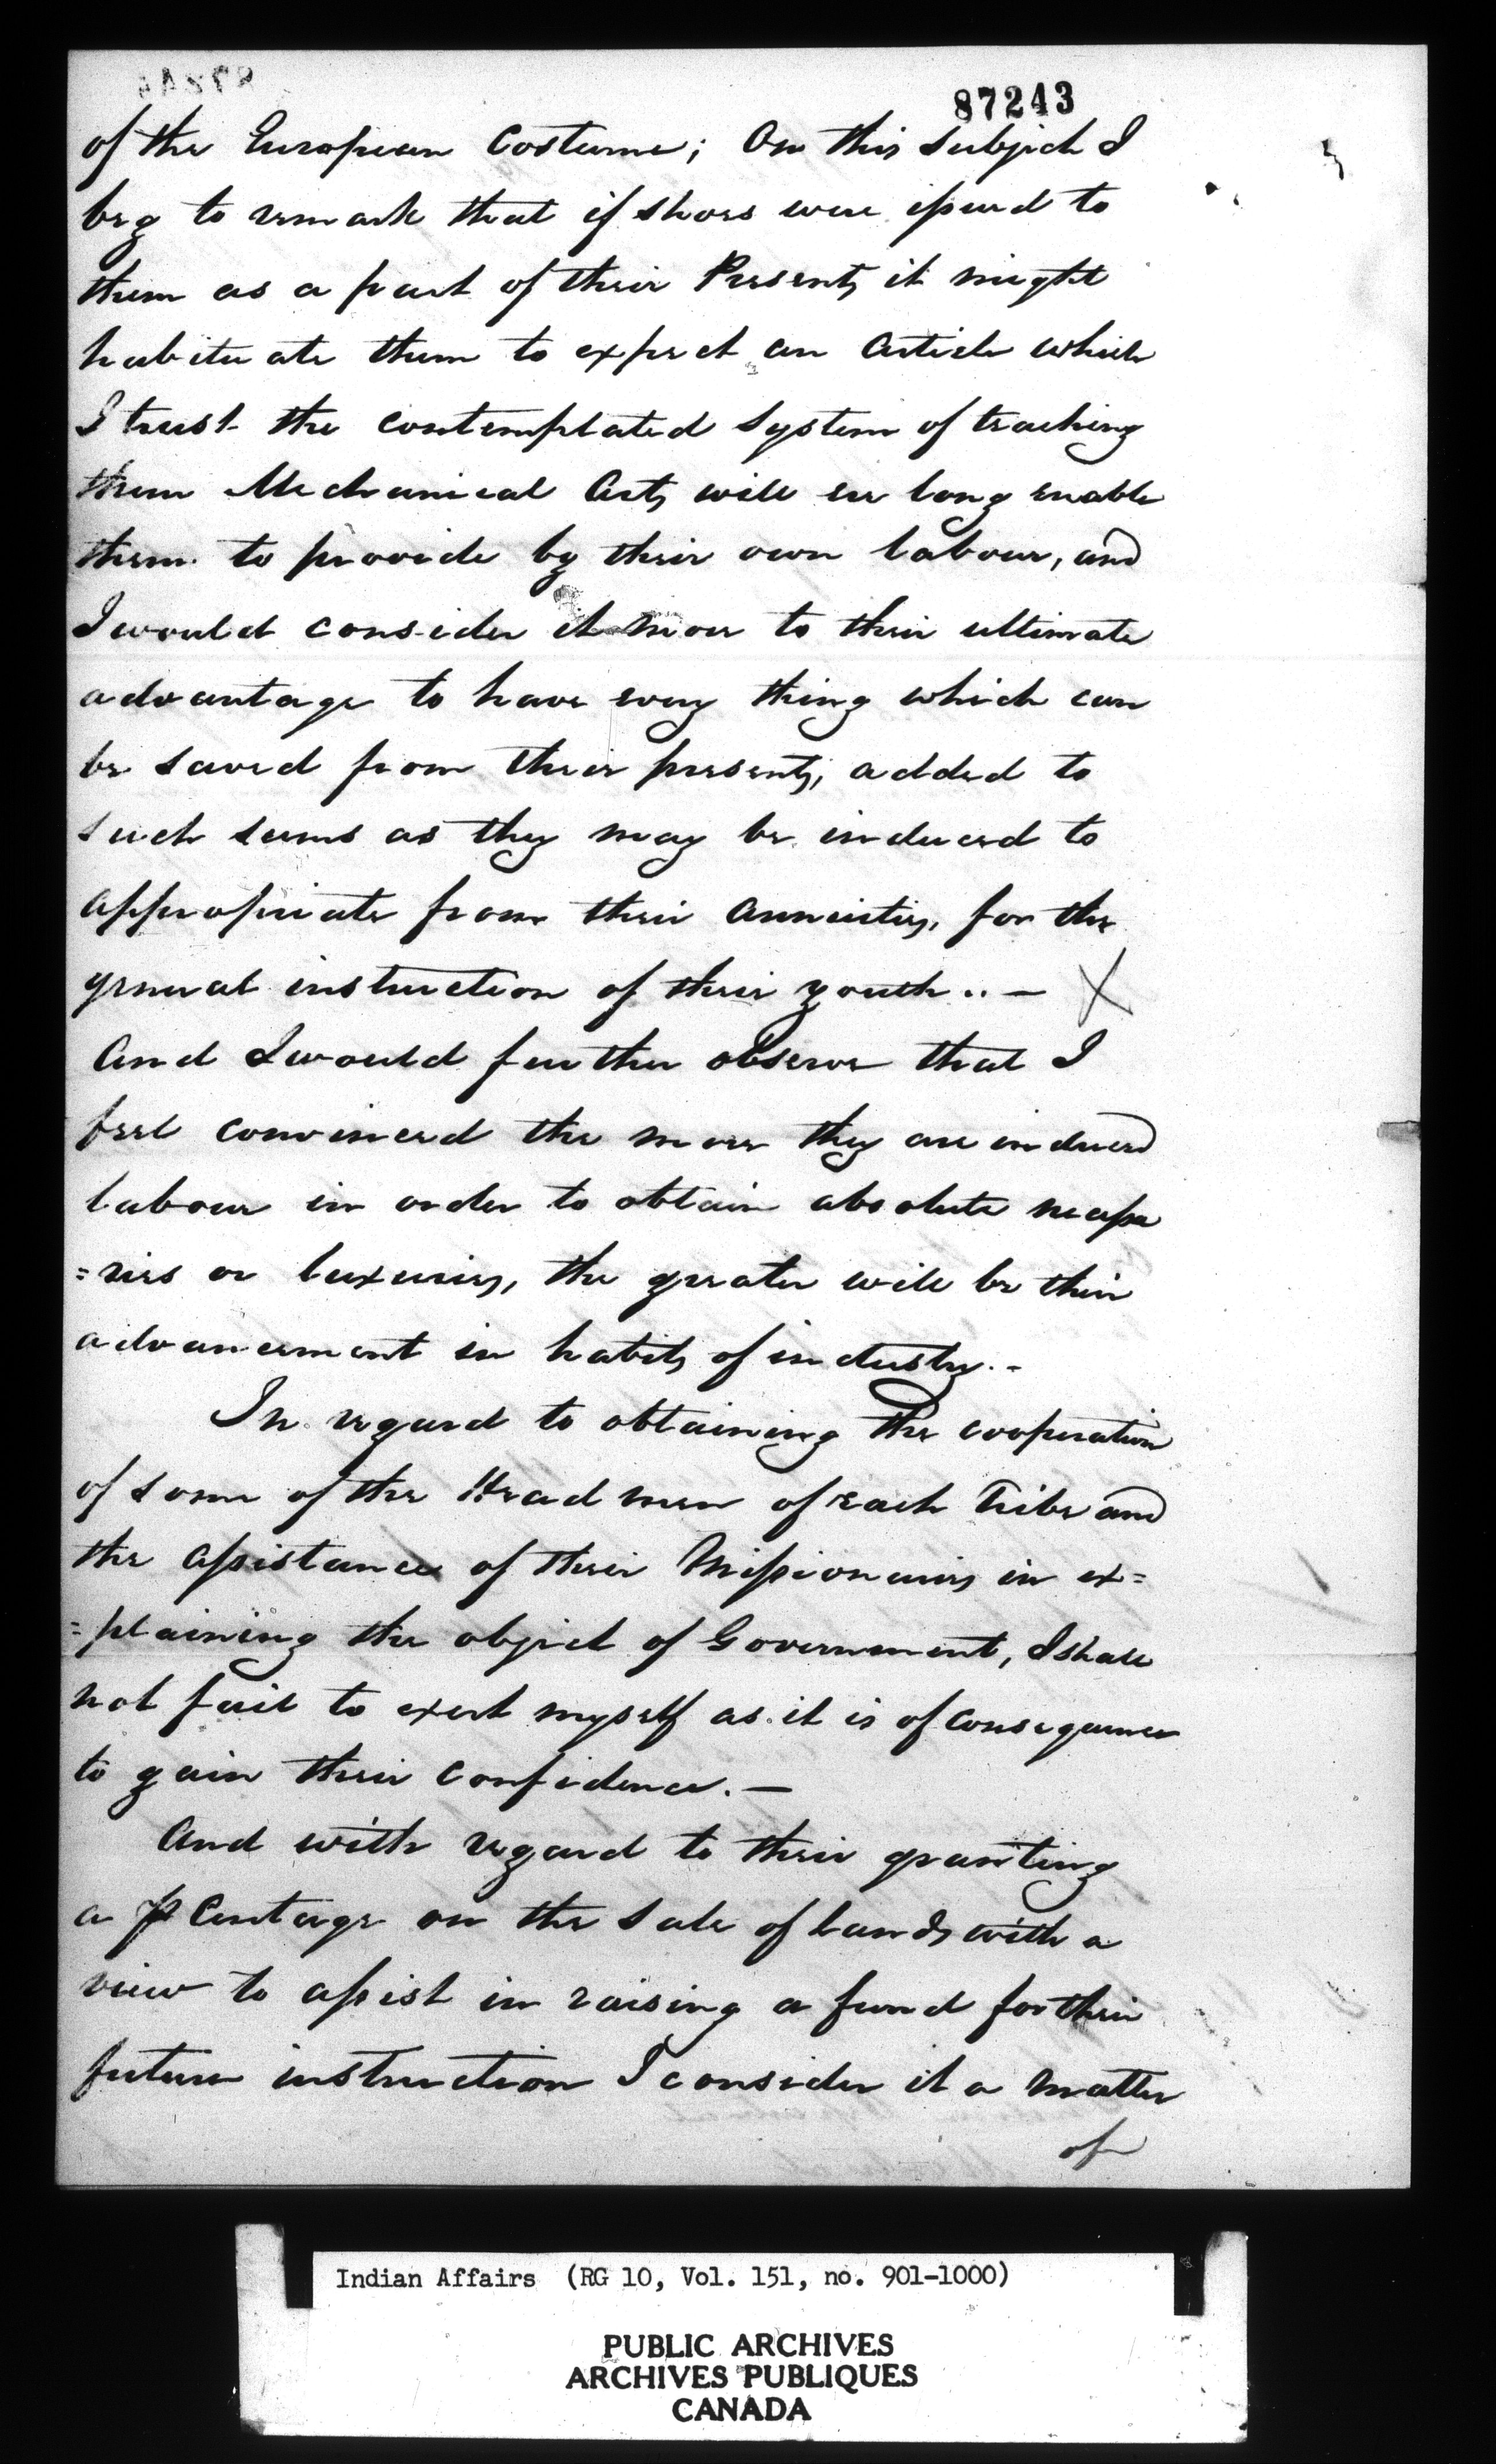 87243
of the European Costume; On this subject I
beg to remark that if shoes were issued to
them as a part of their Presents, it might
habituate them to expect an Article which
I trust the contemplated System of teaching
them Mechanical Arts, will ere long enable
them to provide by their own labour, and
I would consider it more to their ultimate
advantage to have every thing which can
be saved from their presents, added to
such sums as they may be induced to
appropriate from their Annuities, for the
general instruction of their youth .. — X
And I would further observe that I
feel convinced the more they are induced
labour in order to obtain absolute necessa
=ries or luxuries, the greater will be their
advancement in habits of industry. -
In regard to obtaining the cooperation
of some of the Head men of each Tribe and
the assistance of their Missionaries in ex=
=plaining the object of Government, I shall
not fail to exert myself as it is of consequence
to gain their confidence. —
And with regard to their granting
a p Centage on the Sale of lands with a
view to assist in raising a fund for their
future instruction I consider it a matter
of
Indian Affairs (RG 10, Vol. 151, no. 901-1000)
PUBLIC ARCHIVES
ARCHIVES PUBLIQUES
CANADA